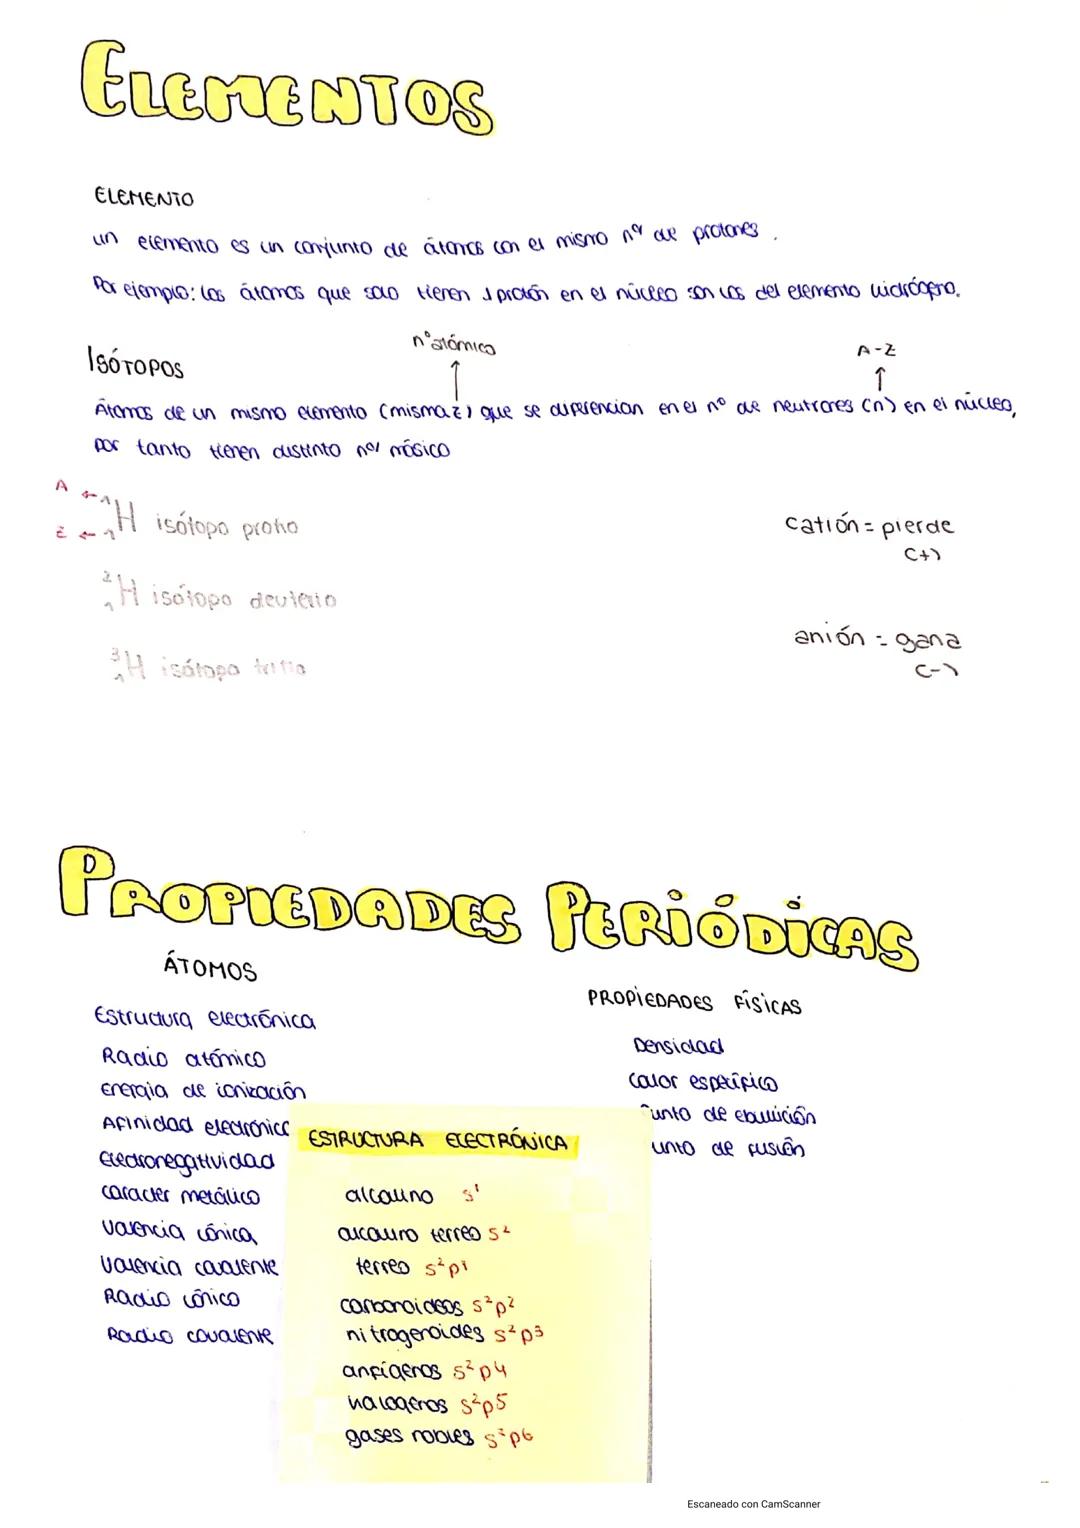 ELEMENTOS
ELEMENTO
un elemento es un conjunto de átomos con el mismo nº de protones.
Por ejemplo: los átomos que solo tienen 1 protón en el núcleo son los del elemento hidrógeno.
nº atómico
A-Z
ISÓTOPOS
Átomos de un mismo elemento (misma z) que se diferencian en el nº de neutrones (n) en el núcleo,
por tanto tienen distinto nº másico
A ← 1
Z ← 1 H isótopo protio
2 1 H isótopo deuterio
3 1 H isótopo tritio
catión = pierde
(+)
anión = gana
(-)
PROPIEDADES PERIÓDICAS
ÁTOMOS
Estructura electrónica
Radio atómico
Energia de ionización
Afinidad electrónica
Electronegatividad
caracter metálico
Valencia iónica
Valencia covalente
Radio iónico
Radio covalente
PROPIEDADES FÍSICAS
Densidad
Calor específico
Punto de ebullición
unto de fusión
ESTRUCTURA ELECTRÓNICA
alcalino s¹
alcalino terreo s²
terreo s²p¹
carbonoideos s²p²
nitrogenoides s²p3
anfígenos s²p4
halogenos s²p5
gases nobles s²p6
Escaneado con CamScanner